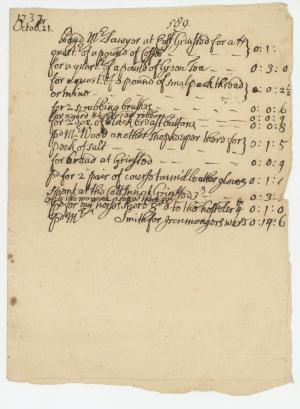 1737
Octob. 21.
589.
Payd Mr. Sawyer at East Grinsted for a
quartr. of a pound of Coffe 0 : 1 :
for a quartr. of a pound of Hyson Tea 0 : 3 : 0
for a quartr. of a pound of small pack thread
or twine 0 : 0 : 2½
for 2 scrubbing brushes 0 : 0 : 6
for a yard of ribbon 0 : 0 : 9
for 2 doz. of black breast buttons 0 : 0 : 8
pd. Mr. Wood another shopkeeper there for
peck of salt 0 : 1 : 5
for bread at Grinsted 0 : 0 : 9
pd. for 2 pair of course tannd leather gloves 0 : 1 :
Spent at the Inn at Grinsted 0 : 3 :
pd. for my horses there & to the hosteler 0 : 1 : 0
pd. Mr. Smith for Ironmongers ware 0 : 14 : 6